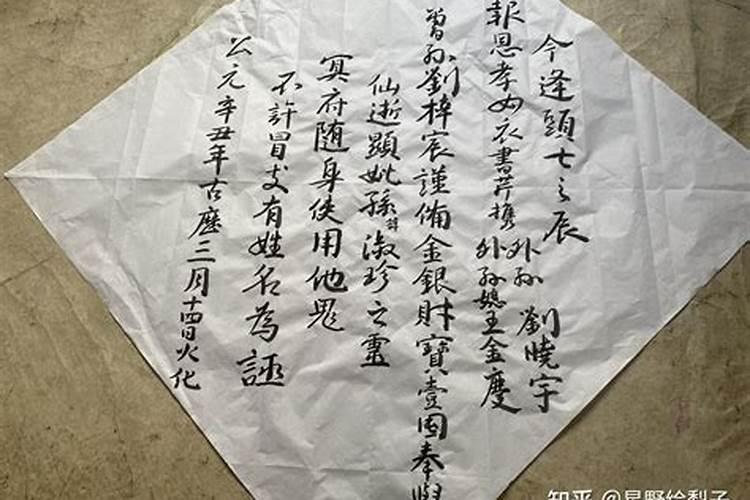 今逢頭七之辰
外孙 劉曉宇
報恩孝女衣書芹携外孙媳王金慶
曾孙劉梓宸謹俻金銀財寳壹囤奉與
仙逝顯妣孫淑珍之靈
冥府随身使用他鬼
不許冒支有姓名為証
公元辛丑年古曆三月十四日火化
知乎 @星野绘梨子